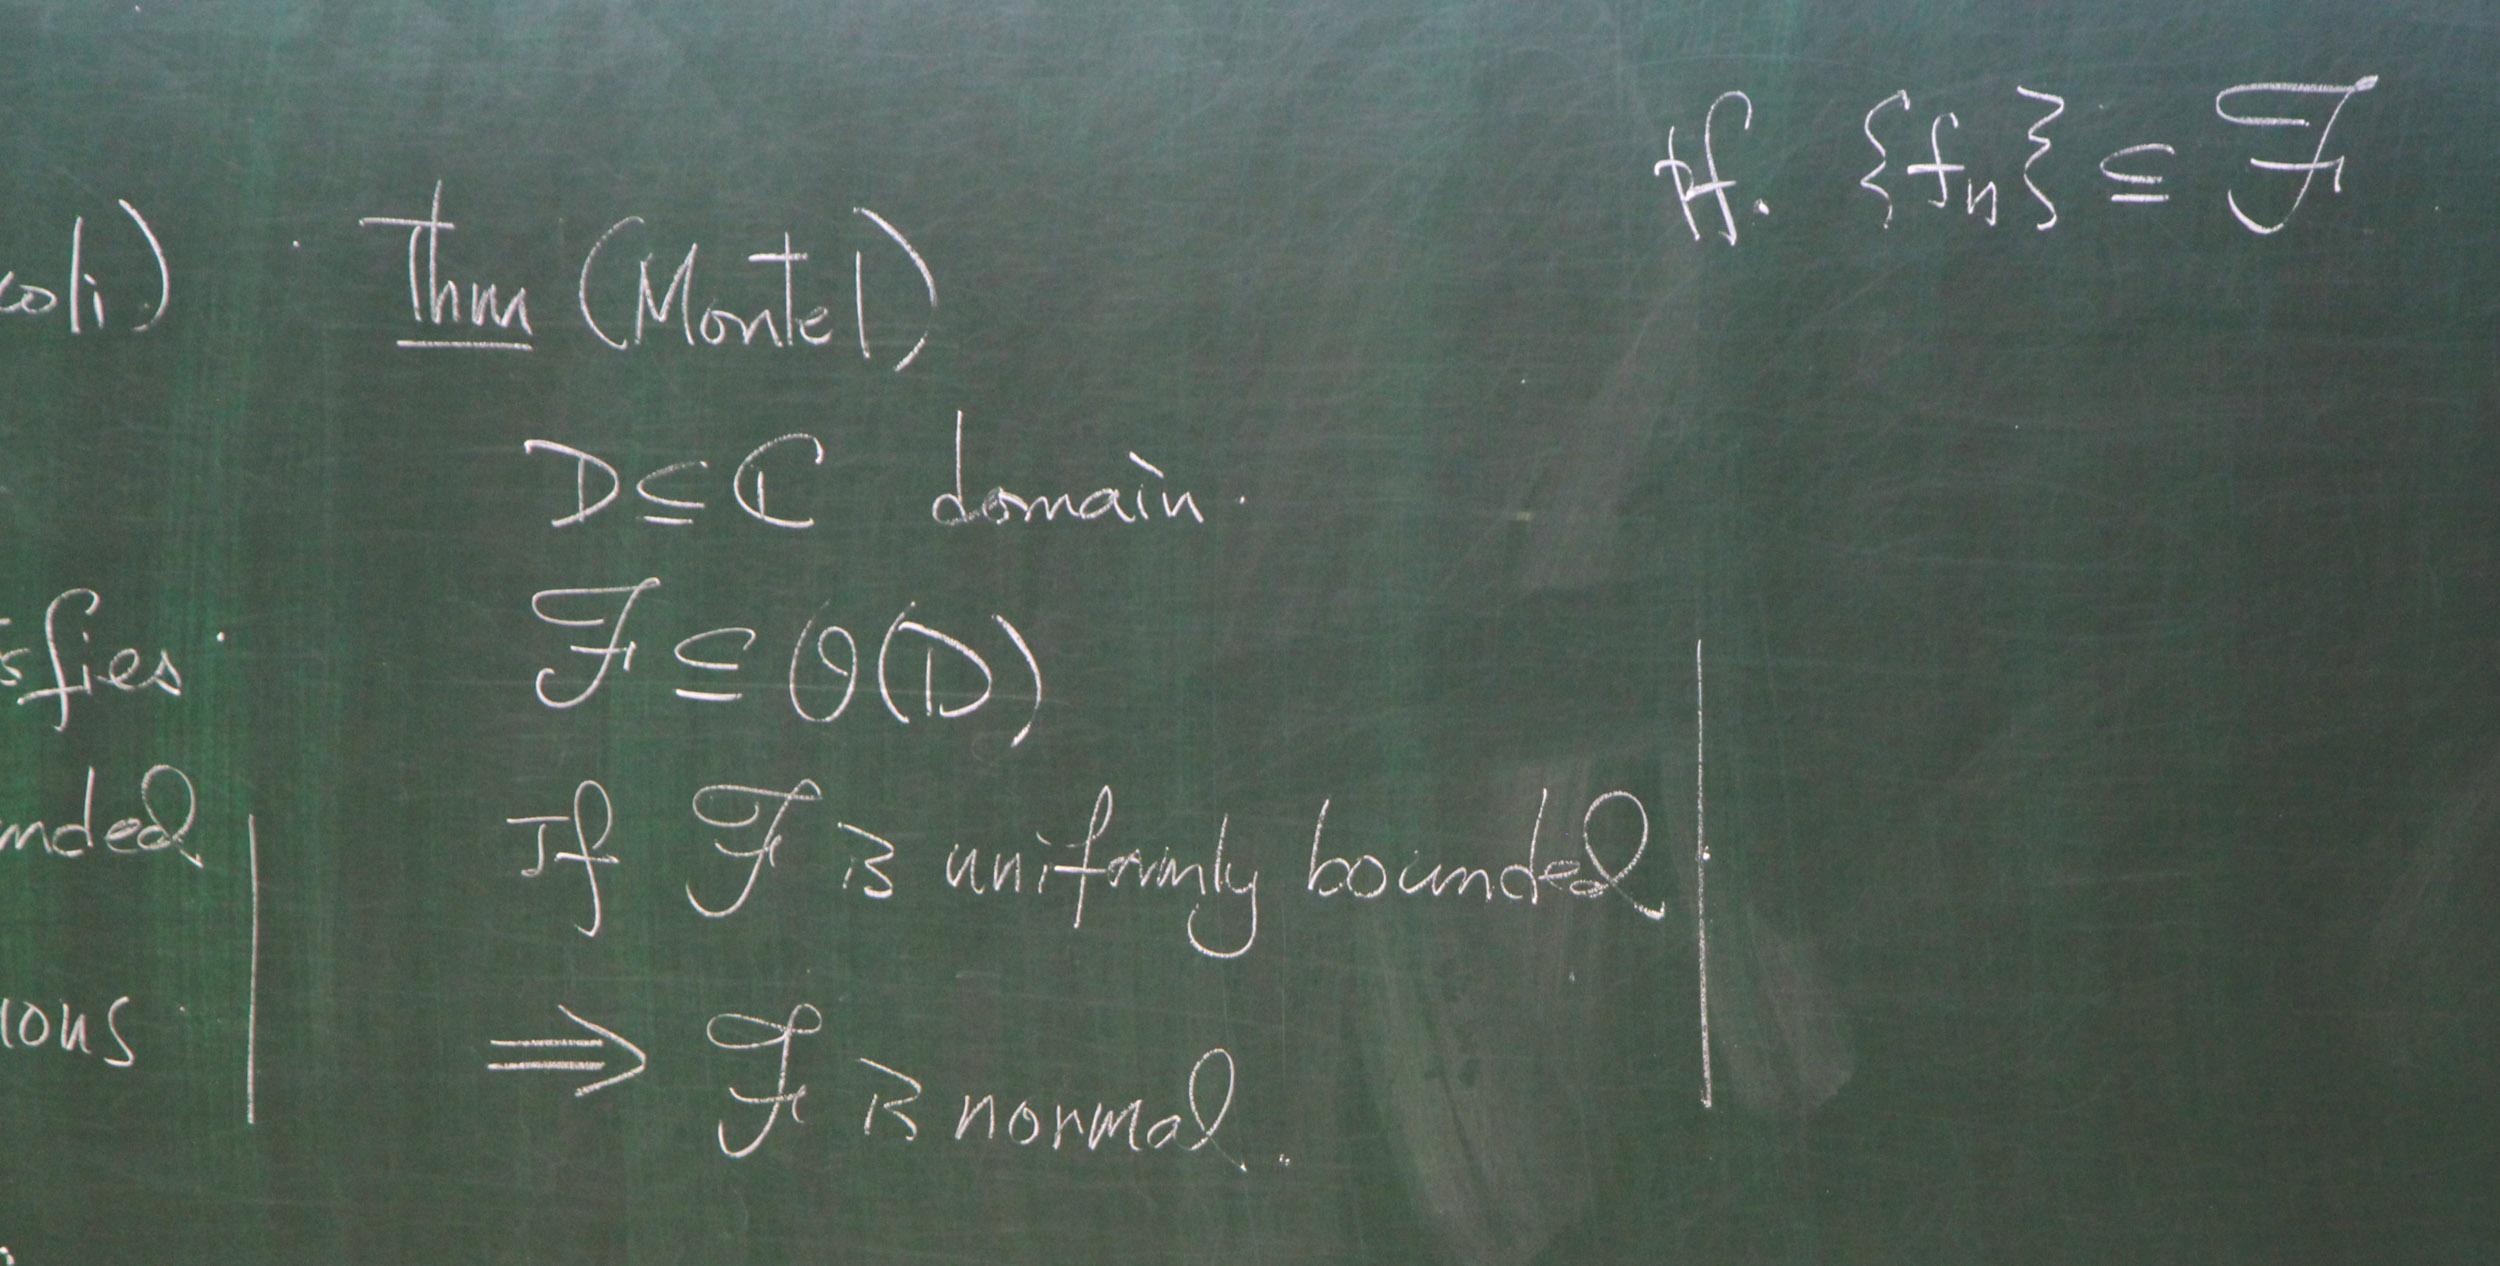 coli)
sfies
nded
ions
Thm (Montel)
D ⊆ ℂ domain.
ℱ ⊆ 𝒪(D)
If ℱ is uniformly bounded
⇒ ℱ is normal.
Pf. {fn} ⊆ ℱ